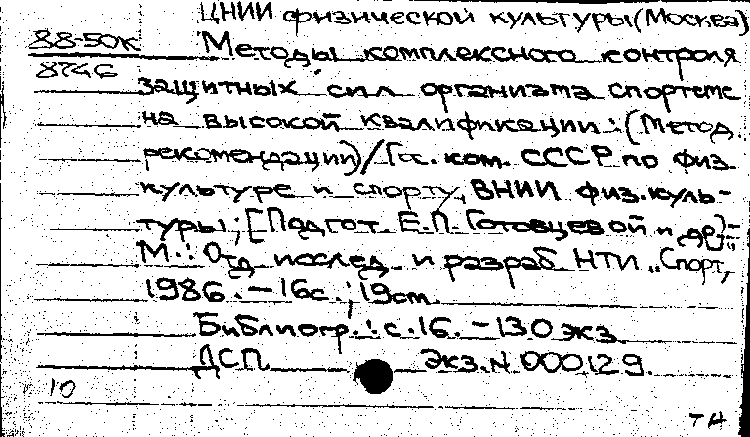 ЦНИИ физической культуры (Москва)
88-50К
Методы комплексного контроля
8746
защитных сил организма спортсме
на высокой квалификации: (Метод.
рекомендации) / Гос. ком. СССР по физ.
культуре и спорту, ВНИИ физ. куль-
туры; [Подгот. Е.П. Готовцевой и др]. -
М.: Отд исслед. и разраб НТИ „Спорт,"
1986. - 16с.; 19см.
Библиогр.: с.16. - 130 экз.
ДСП Экз. N 000129.
10
ТН